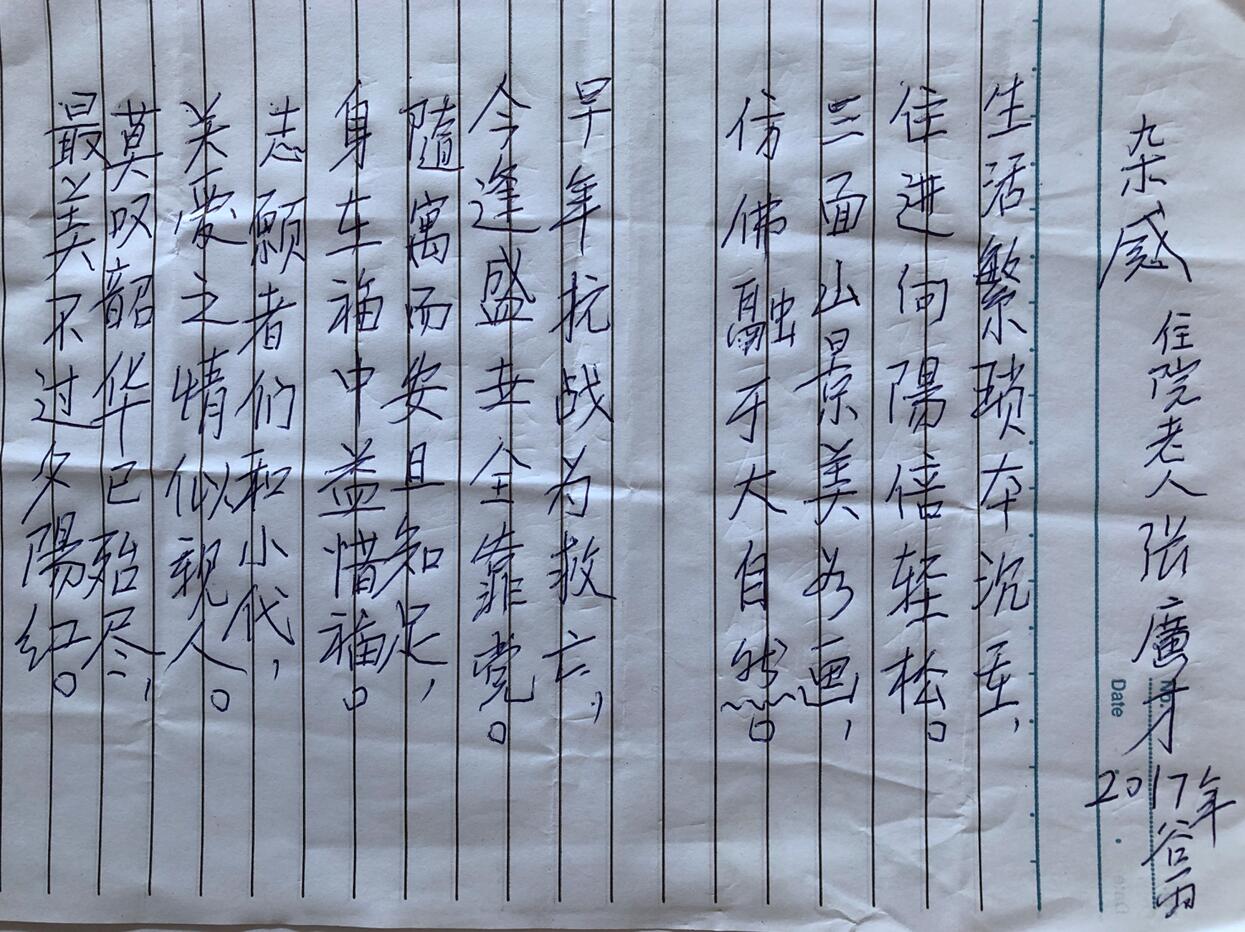 杂感 住院老人张廣才 2017年谷雨
生活繁琐本沉重，
住进向陽倍轻松。
三面山景美如画，
仿佛融于大自然。
早年抗战为救亡，
今逢盛世全靠党。
隨寓而安且知足，
身在福中益惜福。
志愿者们和小代，
关爱之情似親人。
莫叹韶华已殆尽，
最美不过夕陽红。
No.
Date